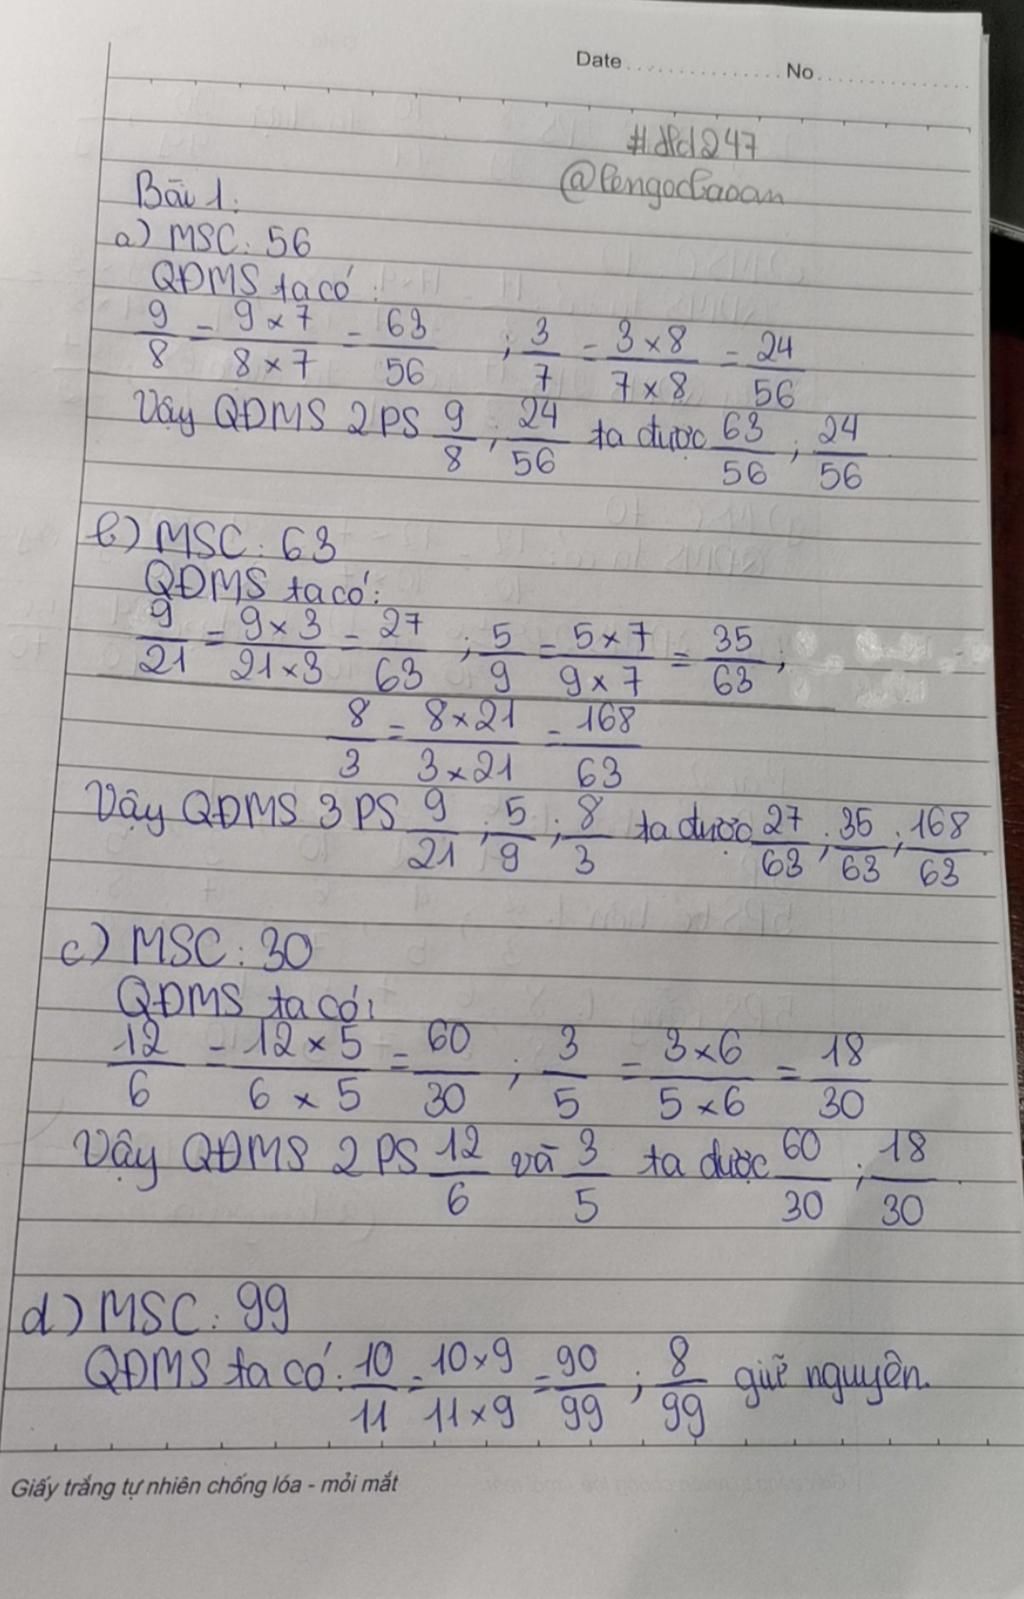 Date ................ No ................
#dpd247
@lengocbaoan
Bài 1:
a) MSC: 56
QĐMS ta có:
9/8 = 9 × 7/8 × 7 = 63/56 ; 3/7 = 3 × 8/7 × 8 = 24/56
Vậy QĐMS 2 PS 9/8 ; 24/56 ta được 63/56 ; 24/56
b) MSC: 63
QĐMS ta có:
9/21 = 9 × 3/21 × 3 = 27/63 ; 5/9 = 5 × 7/9 × 7 = 35/63 ;
8/3 = 8 × 21/3 × 21 = 168/63
Vậy QĐMS 3 PS 9/21 ; 5/9 ; 8/3 ta được 27/63 ; 35/63 ; 168/63.
c) MSC: 30
QĐMS ta có:
12/6 = 12 × 5/6 × 5 = 60/30 ; 3/5 = 3 × 6/5 × 6 = 18/30
Vậy QĐMS 2 PS 12/6 và 3/5 ta được 60/30 ; 18/30.
d) MSC: 99
QĐMS ta có: 10/11 = 10 × 9/11 × 9 = 90/99 ; 8/99 giữ nguyên.
Giấy trắng tự nhiên chống lóa - mỏi mắt